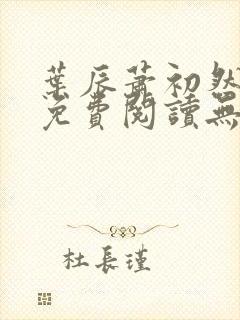 葉辰蕭初然
免費閱讀無
杜長瑾